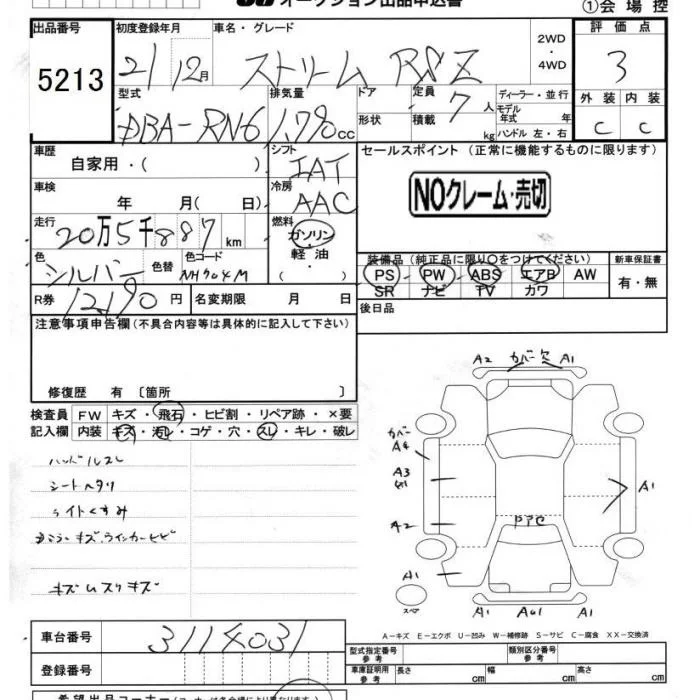 オークション出品申込書
①会場控
出品番号 初度登録年月 車名・グレード 2WD 評価点
5213 21 12月 ストリーム RSZ ・4WD 3
型式 排気量 ドア 定員 7人 ディーラー・並行 外装 内装
DBA-RN6 1,790cc 形状 積載 kg モデル年式 年 C C
ハンドル 左・右
車歴 シフト セールスポイント (正常に機能するものに限ります)
自家用・( ) IAT
車検 冷房 NOクレーム・売切
年 月( 日) AAC
走行 燃料
20万5千887km ガソリン・
色 色替 色コード 軽油・ 装備品 (純正品に限り○をつけてください) 新車保証書
シルバー NH704M ・( ) PS PW ABS エアB AW 有・無
R券 12190円 名変期限 月 日 SR ナビ TV カワ
注意事項申告欄(不具合内容等は具体的に記入して下さい) 後日品
修復歴 有 〔箇所 〕
A2 カバー欠 A1
検査員 FW キズ・飛石・ヒビ割・リペア跡・×要
記入欄 内装 キズ・汚レ・コゲ・穴・スレ・キレ・破レ
カバー
A4
ハンドルスレ
A3
シートヘタリ
A1
ライトくすみ
A2
ミラーキズ、ウインカーヒビ
A1
キズムスリキズ
スペア
A1 A1
A-キズ E-エクボ U-凹み W-補修跡 S-サビ C-腐食 XX-交換済
車台番号 3114031 型式指定番号 参考 類別区分番号 参考
登録番号 車庫証明用 参考 長さ cm 幅 cm 高さ cm
希望出品コーナー